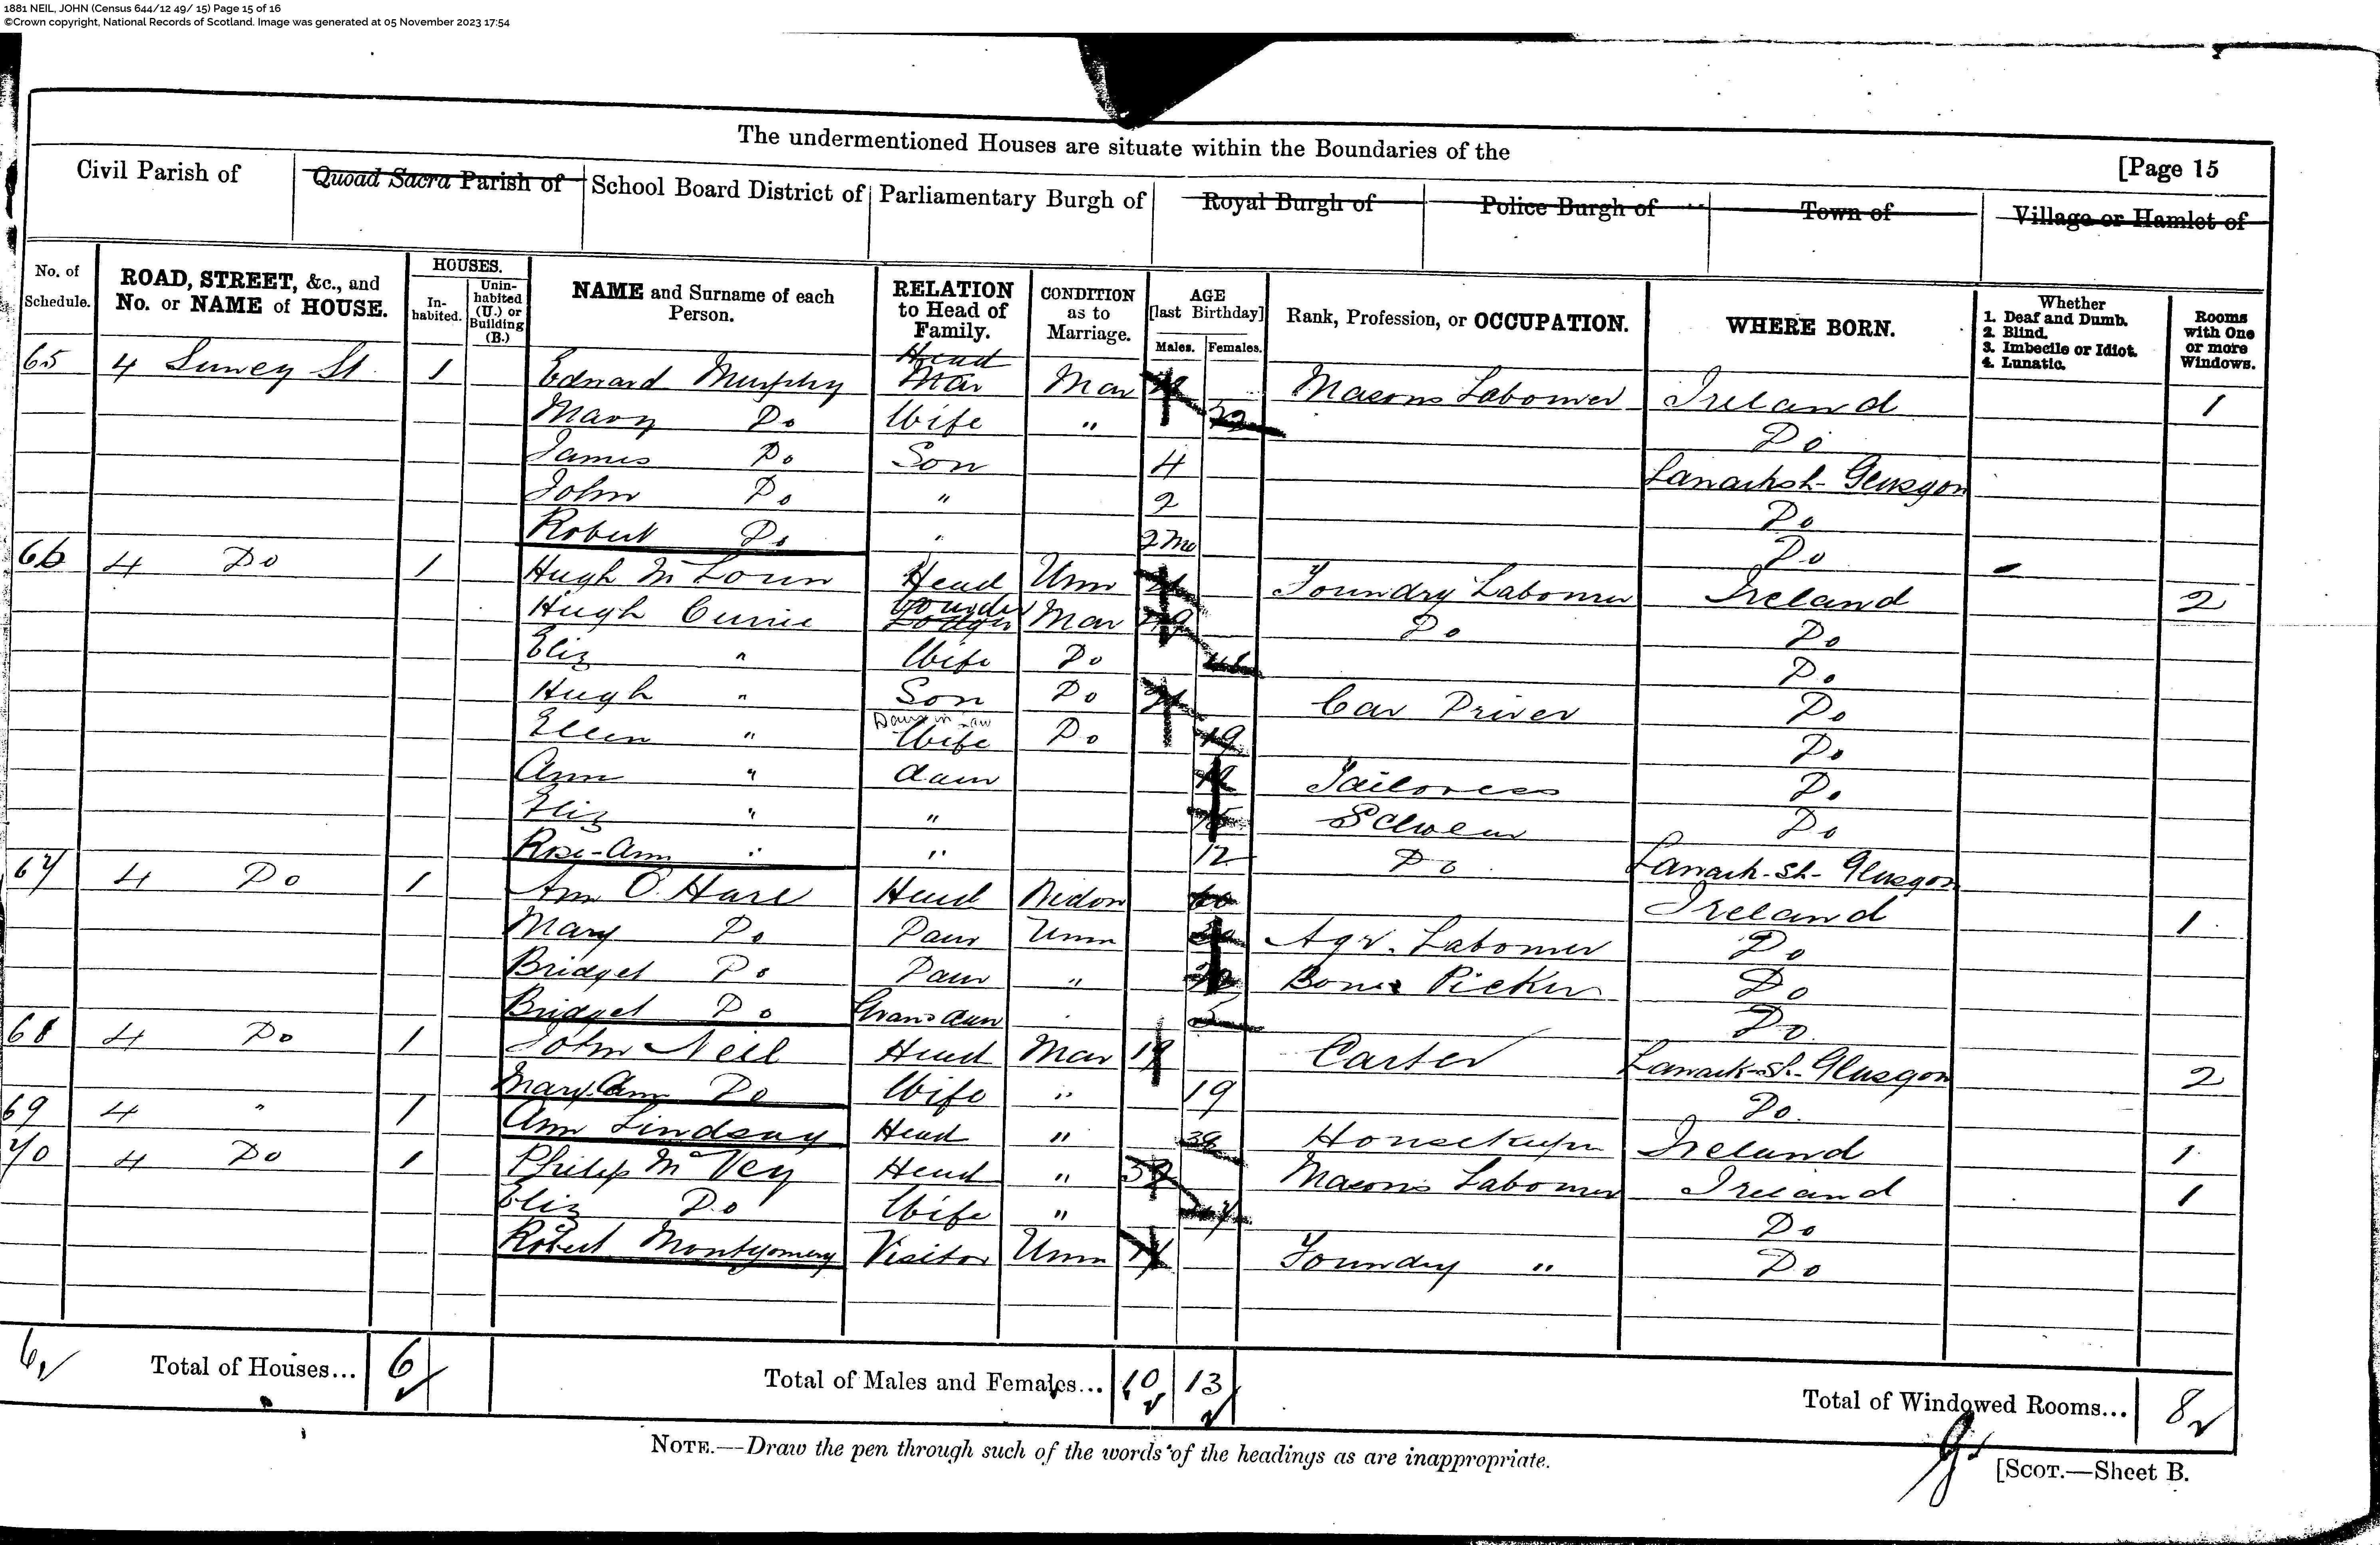 1881 NEIL, JOHN (Census 644/12 49/ 15) Page 15 of 16
©Crown copyright, National Records of Scotland. Image was generated at 05 November 2023 17:54
The undermentioned Houses are situate within the Boundaries of the
[Page 15
Civil Parish of Quoad Sacra Parish of School Board District of Parliamentary Burgh of Royal Burgh of Police Burgh of Town of Village or Hamlet of
No. of Schedule. ROAD, STREET, &c., and No. or NAME of HOUSE. HOUSES. In-habited. Unin-habited (U.) or Building (B.) NAME and Surname of each Person. RELATION to Head of Family. CONDITION as to Marriage. AGE [last Birthday] Males. Females. Rank, Profession, or OCCUPATION. WHERE BORN. Whether 1. Deaf and Dumb. 2. Blind. 3. Imbecile or Idiot. 4. Lunatic. Rooms with One or more Windows.
65 4 St 1 Edward Murphy Head Mar Mar Masons Labourer Ireland 1
Mary Do Wife " 32 Do
James Do Son 4 Lanarksh- Glasgow
John Do " 2 Do
Robert Do " 2 Mo Do
66 4 Do 1 Hugh Head Unm Foundry Labourer Ireland 2
Hugh Currie Lodger Mar Do Do
Eliz " Wife Do Do
Hugh " Son Do Car Driver Do
Ellen " Daur in Law Wife Do 19 Do
Ann " daur Tailoress Do
Eliz " " Do
Rose-Ann " " 12 Do Lanark-Sh- Glasgow
67 4 Do 1 Ann O Hare Head Widow Ireland 1
Mary Do Daur Unm Agr. Labourer Do
Bridget Do Daur " Bone Picker Do
Bridget Do Grand daur 5 Do
68 4 Do 1 John Neil Head Mar 19 Carter Lanark-Sh- Glasgow 2
Mary Ann Do Wife " 19 Do
69 4 " 1 Ann Lindsay Head " Housekeeper Ireland 1
70 4 Do 1 Philip McVey Head " Masons Labourer Ireland 1
Eliz Do Wife " Do
Robert Montgomery Visitor Unm Foundry " Do
6 Total of Houses... 6 Total of Males and Females... 10 13 Total of Windowed Rooms... 8
NOTE.—Draw the pen through such of the words of the headings as are inappropriate.
[SCOT.—Sheet B.